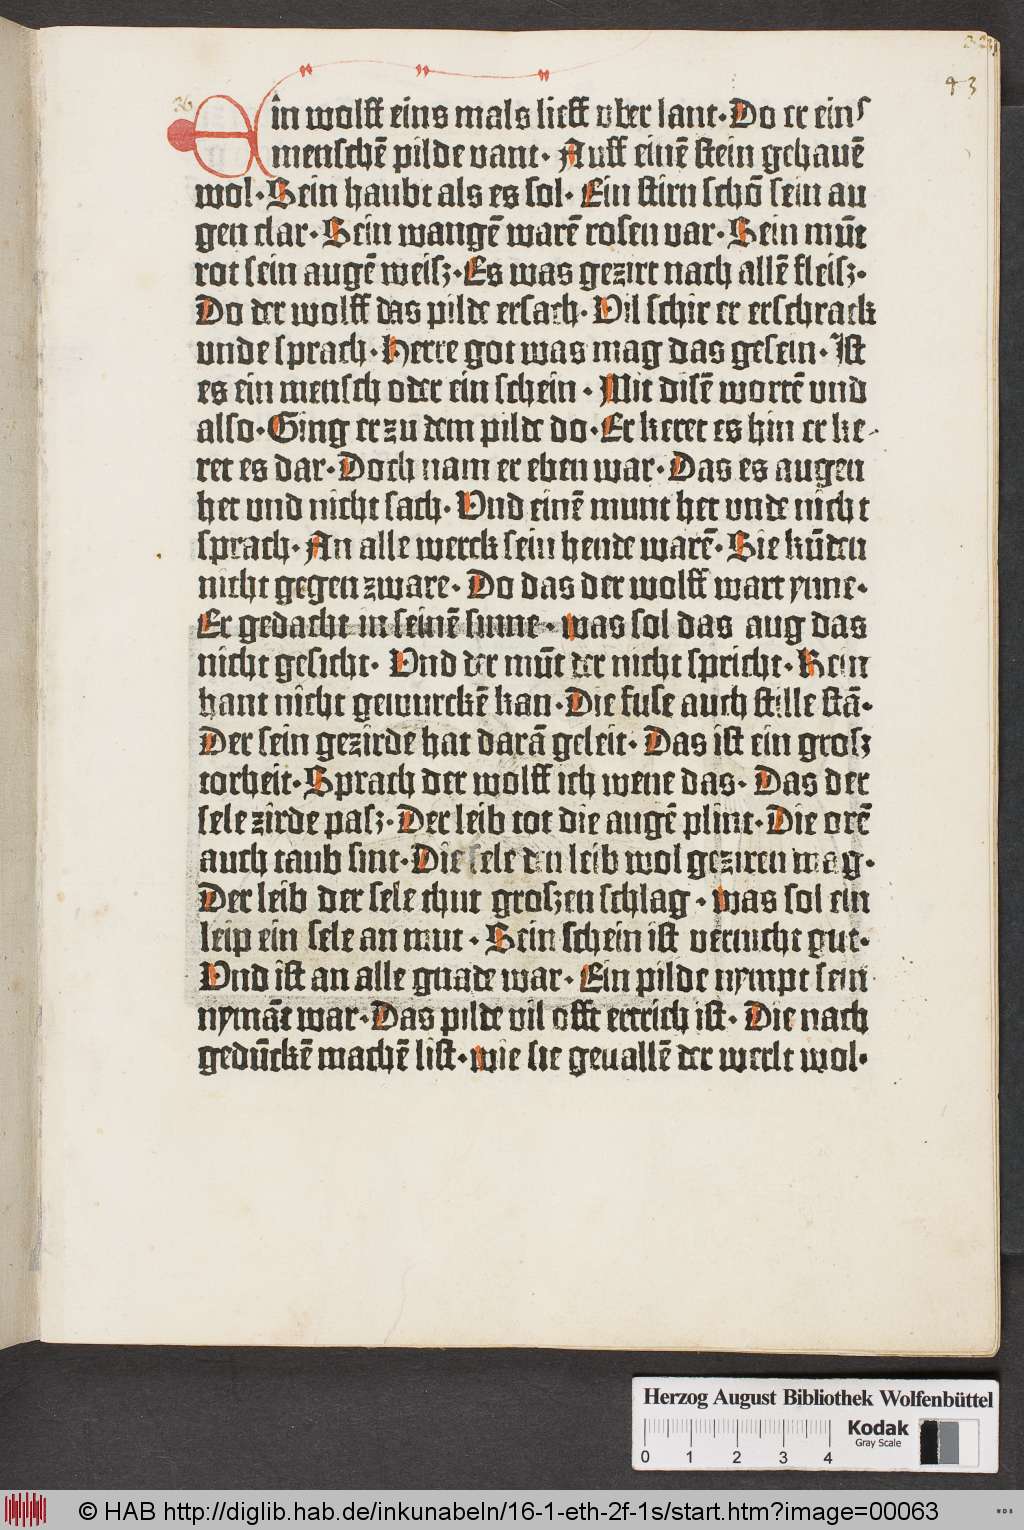 43
36
Ein wolff eins mals lieff vber lant· Do er eins
menschē pilde vant· Auff einē stein gehauē
wol· Sein haubt als es sol· Ein stirn schō sein au
gen clar· Sein wangē warē rosen var· Sein mūt
rot sein augē weisz· Es was gezirt nach allē fleisz·
Do der wolff das pilde ersach· Vil schir er erschrack
vnde sprach· Herre got was mag das gesein· Ist
es ein mensch oder ein schein· Mit disē wortē vnd
also· Ging er zu dem pilde do· Er keret es hin er ke
ret es dar· Doch nam er eben war· Das es augen
het vnd nicht sach· Vnd einē munt het vnde nicht
sprach· An alle werck sein hende warē· Sie kūden
nicht gegen zware· Do das der wolff wart ynne·
Er gedacht in seinē sinne· was sol das aug das
nicht gesicht· Vnd der mūt der nicht spricht· Kein
hant nicht gewurckē kan· Die fuse auch stille stā·
Der sein gezirde hat darā geleit· Das ist ein grosz
torheit· Sprach der wolff ich wene das· Das der
sele zirde pasz· Der leib tot die augē plint· Die orē
auch taub sint· Die sele den leib wol geziren mag·
Der leib der sele thut groszen schlag· was sol ein
leip ein sele an mut· Sein schein ist vernicht gut·
Vnd ist an alle gnade war· Ein pilde nympt sein
nymāt war· Das pilde vil offt ertrich ist· Die nach
gedūckē machē list· wie sie geuallē der werlt wol·
Herzog August Bibliothek Wolfenbüttel
Kodak
Gray Scale
0 1 2 3 4
© HAB http://diglib.hab.de/inkunabeln/16-1-eth-2f-1s/start.htm?image=00063